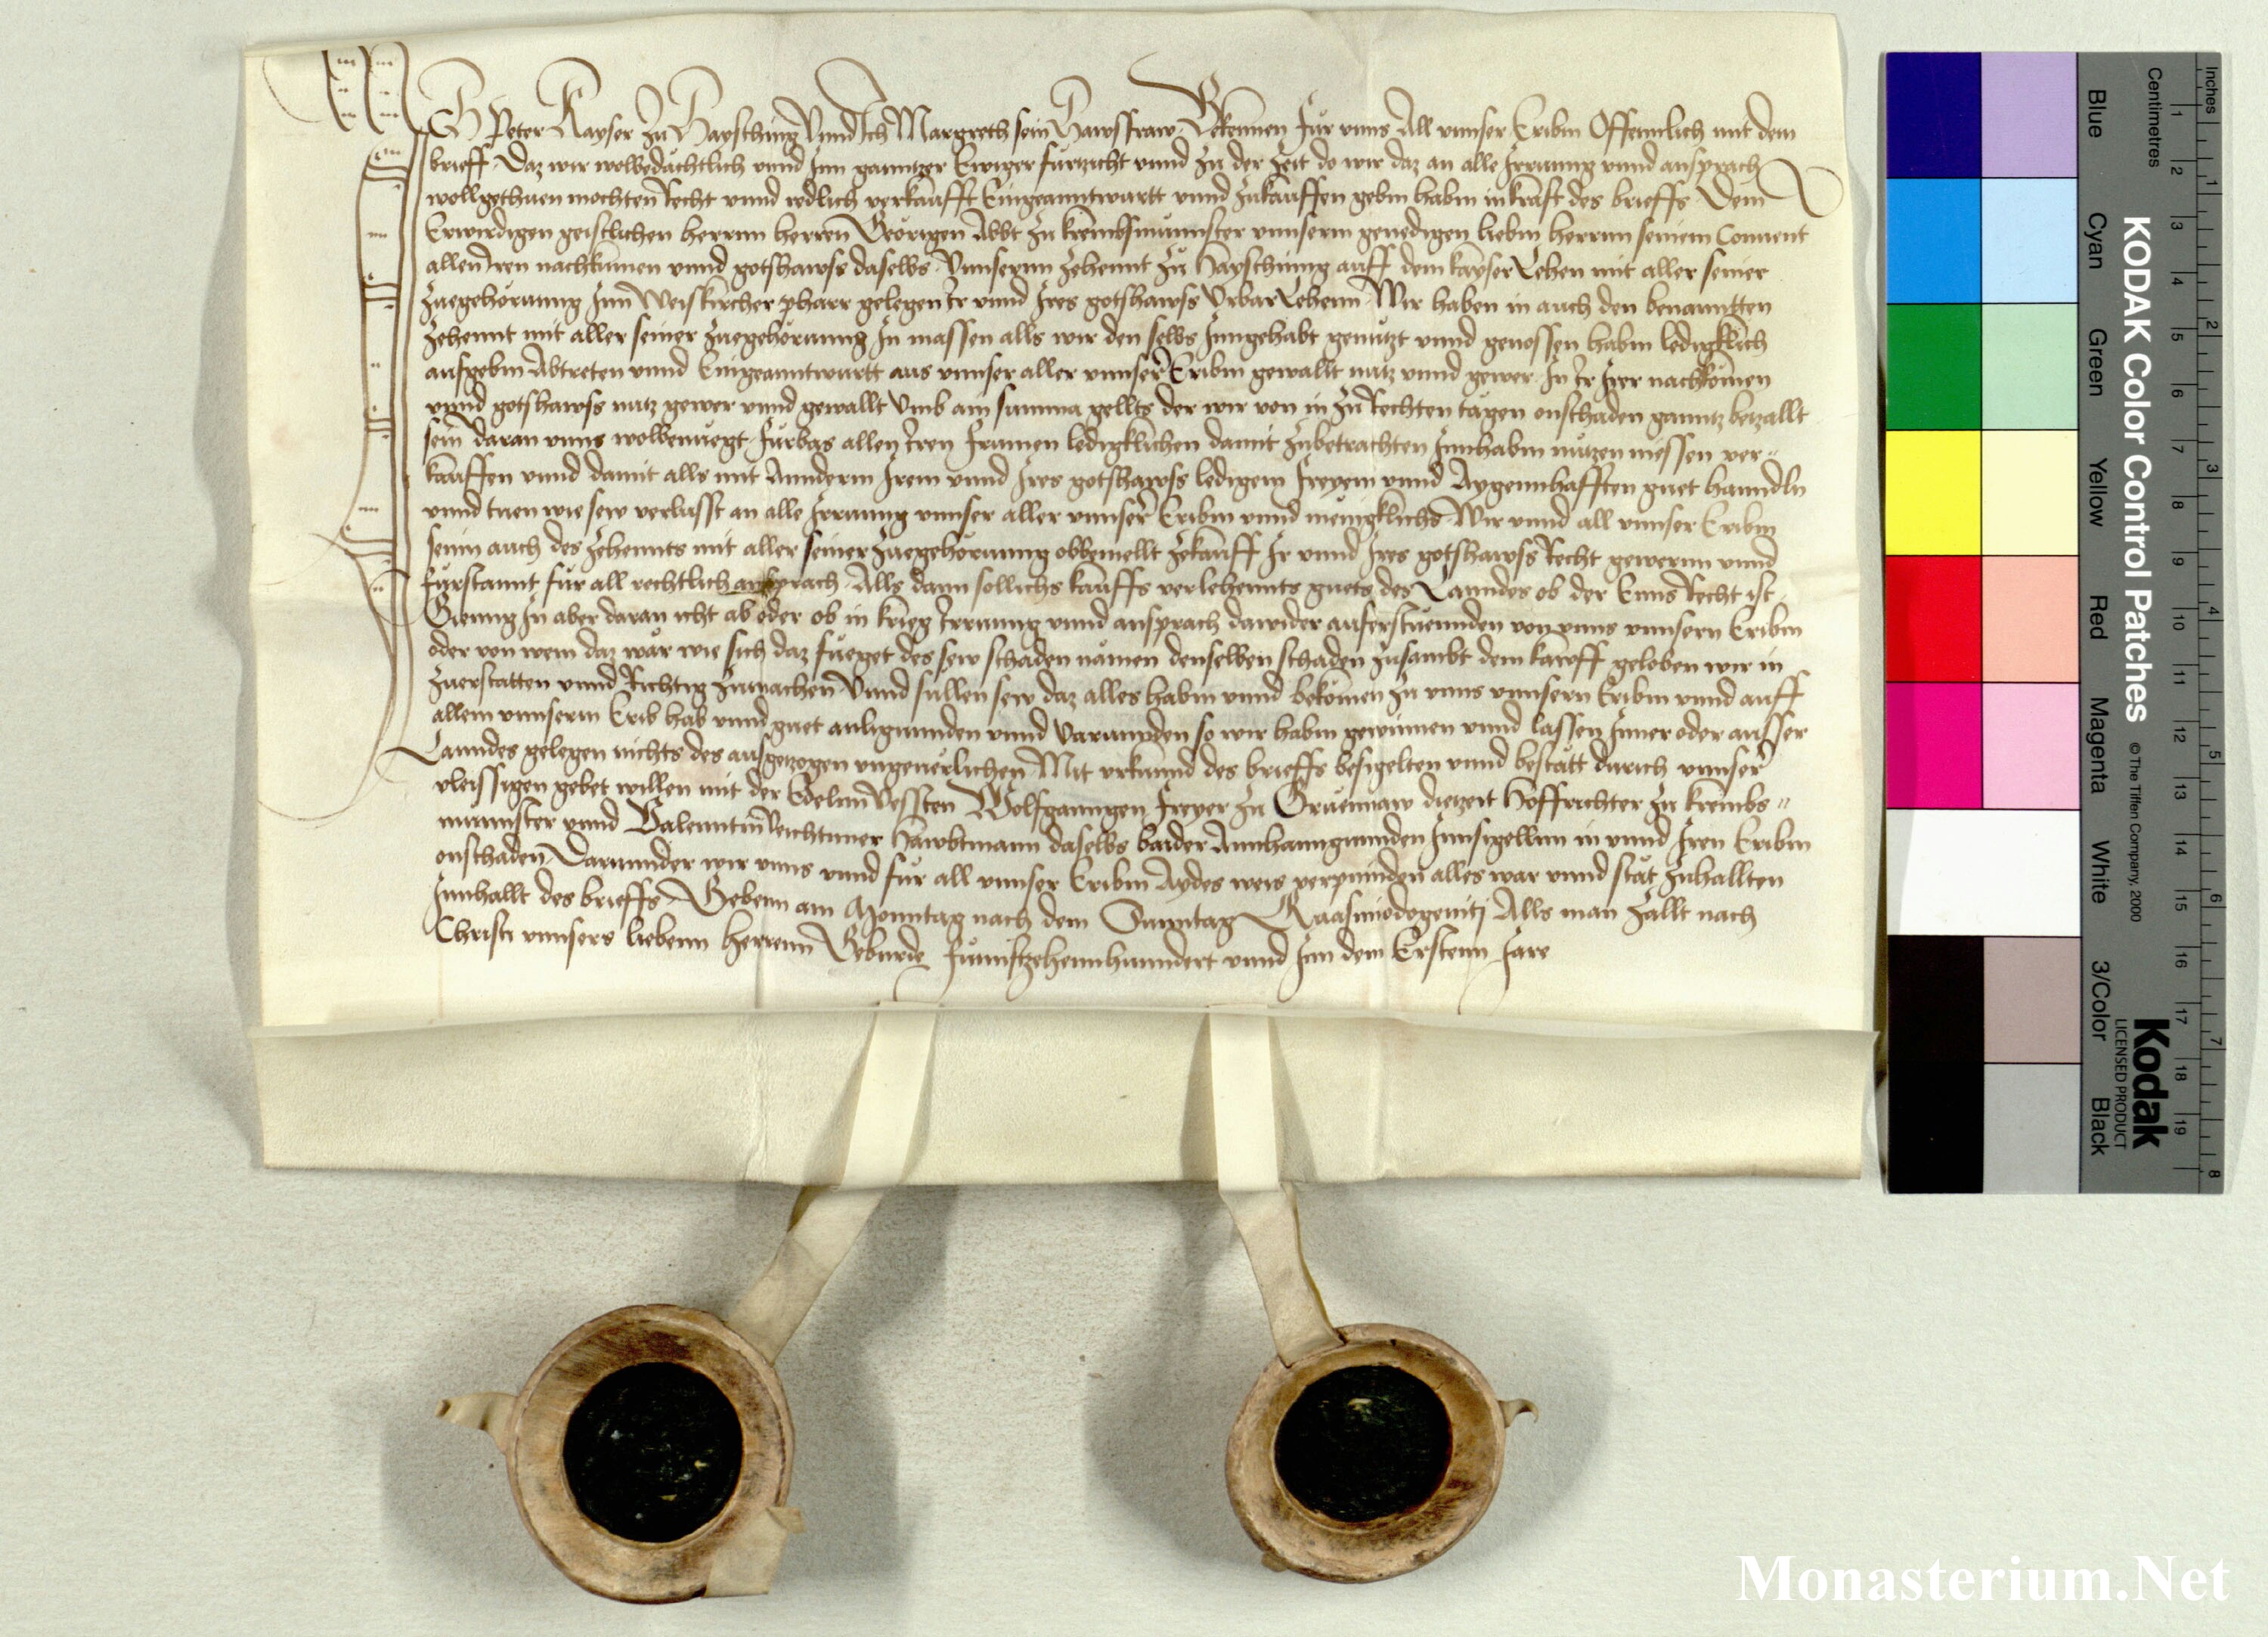 Ich Peter Kayser zu Haysching Unnd Ich Margreth sein Hawsfraw Bekennen für unns All unnser Eribm Offennlich mit dem
brieff Daz wir wolbedächtlich unnd Inn ganntzer Ewiger fürzicht unnd zu der Zeit do wir daz an alle Irrung unnd ansprach
wollgethuen mochten Recht unnd redlich verkaufft Eingeanntwurtt unnd zukauffen gebm habm in krafft des brieffs Dem
Erwirdigen geistlichen herrnn herren Geörigen Abbt zu krembsmünnster unnserm genedigen liebm herrnn seinem Convent
allen Iren nachkumen unnd gotshawss daselbs Unnsernn Zehennt zu Hayschinng auff dem kayser Lehen mit aller seiner
Zuegehörunng Inn Weiskircher pharr gelegen Ir unnd Ires gotshawss Urbar Lehenn Wir haben in auch den benanntten
Zehennt mit aller seiner Zuegehörunng In massen alls wir den selbs Inngehabt genützt unnd genossen habm ledigklich
aufgebm Abtreten unnd Eingeanntwurtt aus unnser aller unnser Eribm gewallt nutz unnd gewer In Ir Irer nachkomen
unnd gotshawss nutz gewer unnd gewallt Umb ain summa gellts der wir von in zu Rechten tägen onschaden ganntz betzallt
sein daran unns wolbenuegt fürbas allen Iren frumen ledigklichen damit zubetrachten Innhabm nützen niessen ver-
kauffen unnd damit alls mit Annderm Irem unnd Ires gotshawss ledigem freyem unnd Aygennhafften guet hanndln
unnd tuen wie sew verlusst an alle Irrunng unnser aller unnser Eribm unnd menigklichs Wir unnd all unnser Eribm
seinn auch des Zehennts mit aller seiner Zuegehörunng obbemellt Zekauff Ir unnd Ires gotshawss Recht gewernn unnd
fürstannt für all rechtlich ansprach Alls dann sollichs kauffs verlehennts guets des Lanndes ob der Enns Recht ist
Gienng In aber daran icht ab oder ob in krieg Irrunng unnd ansprach dawider auferstüennden von unns unnsern Eribm
oder von wem daz wär wie sich daz füeget des sew schaden nämen denselben schaden zusambt dem kawff geloben wir in
Zuerstatten unnd Richtig zumachen Unnd sullen sew daz alles habm unnd bekömen zu unns unnsern Eribm unnd auff
allem unnserm Erib hab unnd guet anligunnden unnd Varunnden so wir habm gewinnen unnd lassen Inner oder ausser
Lanndes gelegen nichts des ausgetzogen ungeuerlichen Mit urkunnd des brieffs besigelten unnd bestätt durich unnser
vleissigen gebet willen mit der Edelnn Vessten Wolfganngen Freyer zu Grüennaw dietzeit Hoffrichter zu krembs-
münnster unnd Valenntin Leichtnner Hawbtmann daselbs baider Annhanngunnden Innsigellnn in unnd Iren Eribm
onschaden Darunnder wir unns unnd für all unnser Eribm Aydes weis verpinnden alles war unnd stät zuhallten
Innhallt des brieffs Gebenn am Monntag nach dem Sunntag Quasimodogeniti Alls man zallt nach
Christi unnsers liebenn herrenn Geburde fünnftzehennhunndert unnd Inn dem Erstenn Jare
KODAK Color Control Patches
© The Tiffen Company, 2000
Kodak
LICENSED PRODUCT
Blue
Cyan
Green
Yellow
Red
Magenta
White
3/Color
Black
Inches
1
2
3
4
5
6
7
8
Centimetres
1
2
3
4
5
6
7
8
9
10
11
12
13
14
15
16
17
18
19
Monasterium.Net